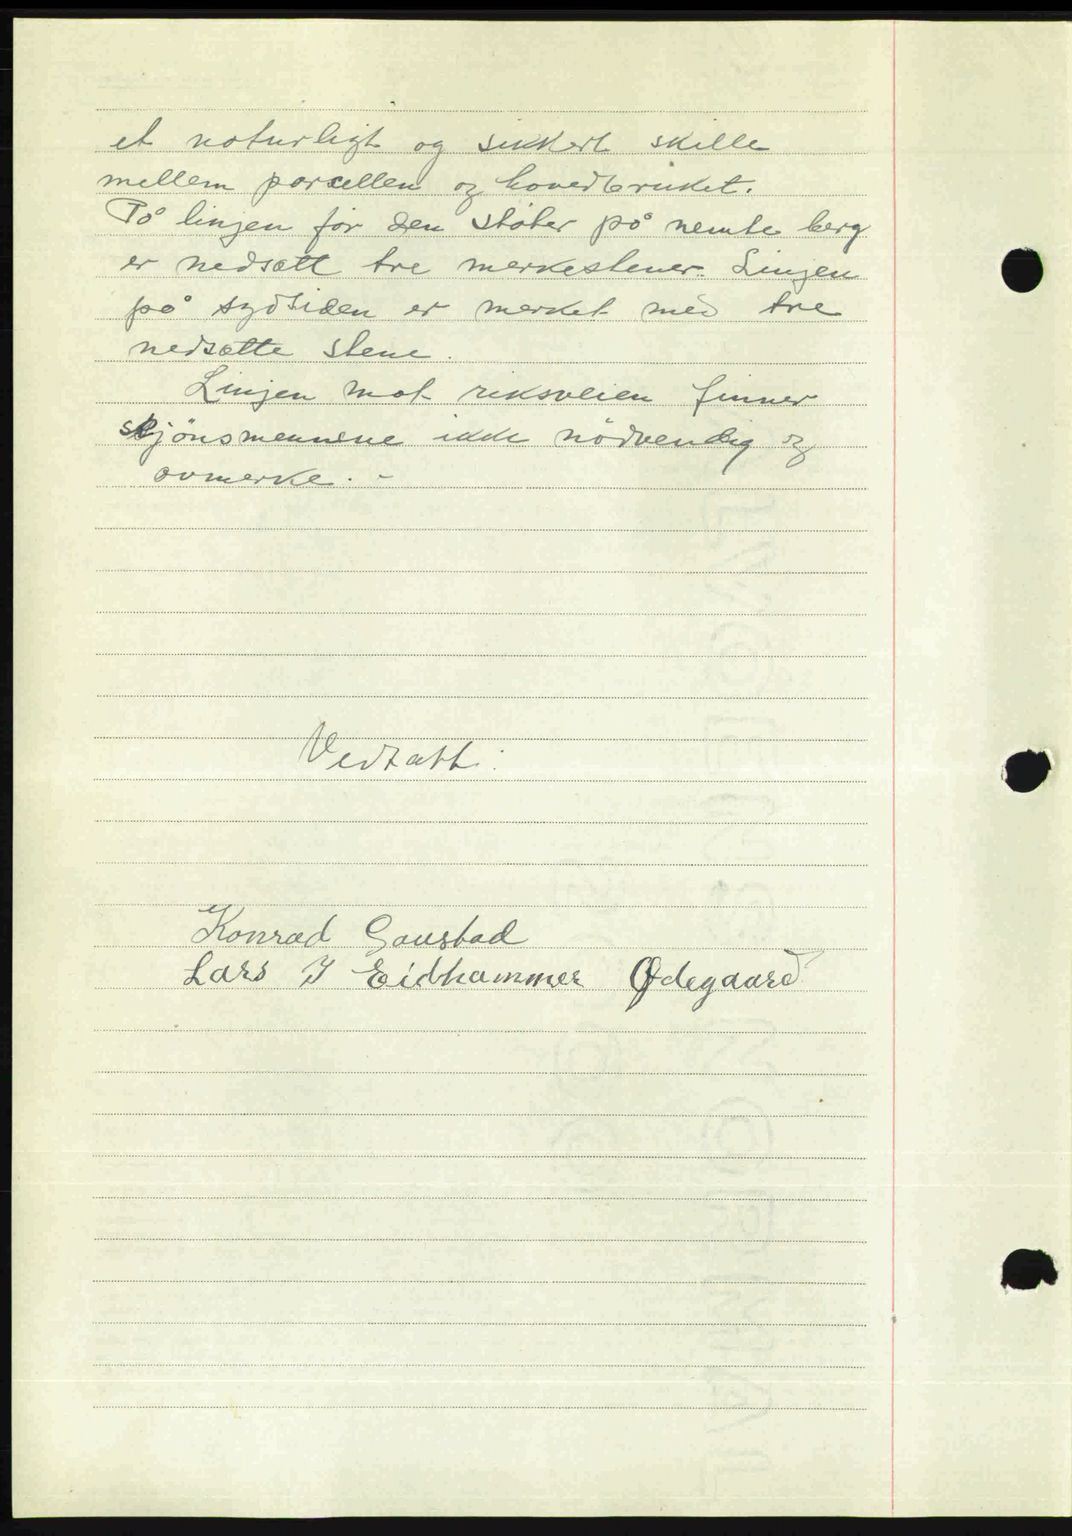 et naturligt og sikkert skille
mellem parcellen og hovedbruket.
På linjen før den støter på nemte berg
er nedsatt tre merkestener. Linjen
på sydsiden er merket med tre
nedsatte stene.
Linjen mot riksveien finner
skjønsmennene ikke nödvendig og
avmerke. -
Vedtatt:
Konrad Gaustad
Lars I Eidhammer Ødegaard